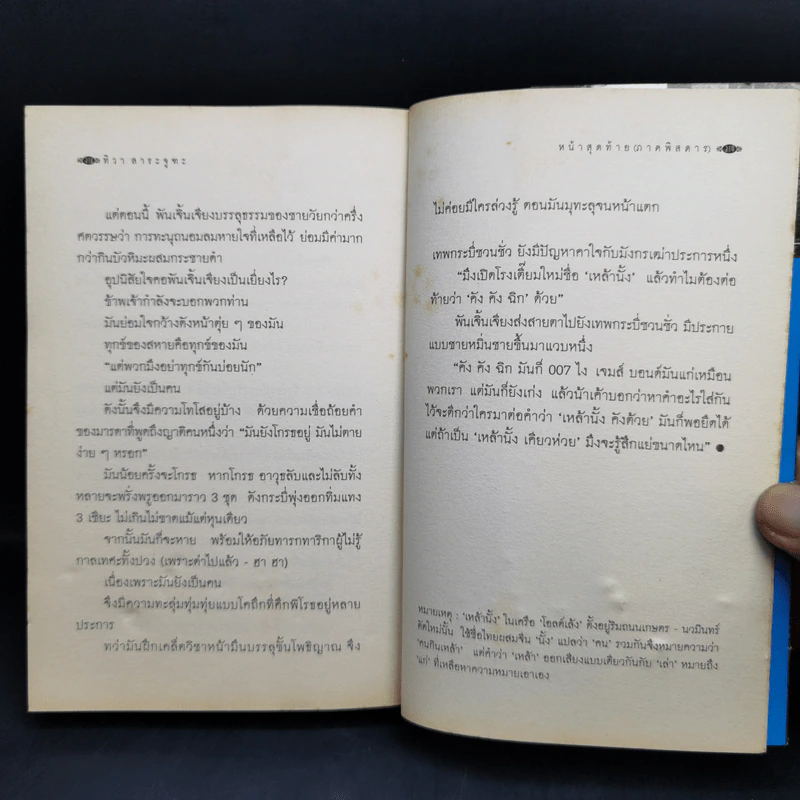 ทิวา สาระจูฑะ
แต่ตอนนี้ พันเจิ้นเจียงบรรลุธรรมของชายวัยกว่าครึ่ง
ศตวรรษว่า การทะนุถนอมลมหายใจที่เหลือไว้ ย่อมมีค่ามาก
กว่ากินบัวหิมะผสมกระชายดำ
อุปนิสัยใจคอพันเจิ้นเจียงเป็นเยี่ยงไร?
ข้าพเจ้ากำลังจะบอกพวกท่าน
มันย่อมใจกว้างดังหน้าตุ่ย ๆ ของมัน
ทุกข์ของสหายคือทุกข์ของมัน
“แต่พวกมึงอย่าทุกข์กันบ่อยนัก”
แต่มันยังเป็นคน
ดังนั้นจึงมีความโทโสอยู่บ้าง ด้วยความเชื่อถ้อยคำ
ของมารดาที่พูดถึงญาติคนหนึ่งว่า “มันยังโกรธอยู่ มันไม่ตาย
ง่าย ๆ หรอก”
มันน้อยครั้งจะโกรธ หากโกรธ อาวุธลับและไม่ลับทั้ง
หลายจะพรั่งพรูออกมาราว 3 ชุด ดังกระบี่พุ่งออกทิ่มแทง
3 เซียะ ไม่เกินไม่ขาดแม้แต่หุนเดียว
จากนั้นมันก็จะหาย พร้อมให้อภัยทารกทาริกาผู้ไม่รู้
กาลเทศะทั้งปวง (เพราะด่าไปแล้ว - ฮา ฮา)
เนื่องเพราะมันยังเป็นคน
จึงมีความทะลุ่มทุ่มทุ่ยแบบโคถึกที่ศึกพิโรธอยู่หลาย
ประการ
ทว่ามันฝึกเคล็ดวิชาหน้ามึนบรรลุขั้นโพธิญาณ จึง
หน้าสุดท้าย(ภาคพิสดาร)
ไม่ค่อยมีใครล่วงรู้ ตอนมันมุทะลุจนหน้าแตก
เทพกระบี่ชวนชั่ว ยังมีปัญหาคาใจกับมังกรเฒ่าประการหนึ่ง
“มึงเปิดโรงเตี๊ยมใหม่ชื่อ ‘เหล้านั้ง’ แล้วทำไมต้องต่อ
ท้ายว่า ‘คัง คัง ฉิก’ ด้วย”
พันเจิ้นเจียงส่งสายตาไปยังเทพกระบี่ชวนชั่ว มีประกาย
แบบชายหมิ่นชายขึ้นมาแวบหนึ่ง
“คัง คัง ฉิก มันก็ 007 ไง เจมส์ บอนด์มันแก่เหมือน
พวกเรา แต่มันก็ยังเก่ง แล้วน้าเค้าบอกว่าหาคำอะไรใส่กัน
ไว้จะดีกว่าใครมาต่อคำว่า ‘เหล้านั้ง คังด้วย’ มันก็พอยืดได้
แต่ถ้าเป็น ‘เหล้านั้ง เคียวห่วย’ มึงจะรู้สึกแย่ขนาดไหน” ●
หมายเหตุ : ‘เหล้านั้ง’ ในเครือ ‘โอลด์เล้ง’ ตั้งอยู่ริมถนนเกษตร - นวมินทร์
ตัดใหม่นั้น ใช้ชื่อไทยผสมจีน ‘นั้ง’ แปลว่า ‘คน’ รวมกันจึงหมายความว่า
‘คนกินเหล้า’ แต่คำว่า ‘เหล้า’ ออกเสียงแบบเดียวกันกับ ‘เล่า’ หมายถึง
‘แก่’ ที่เหลือหาความหมายเอาเอง